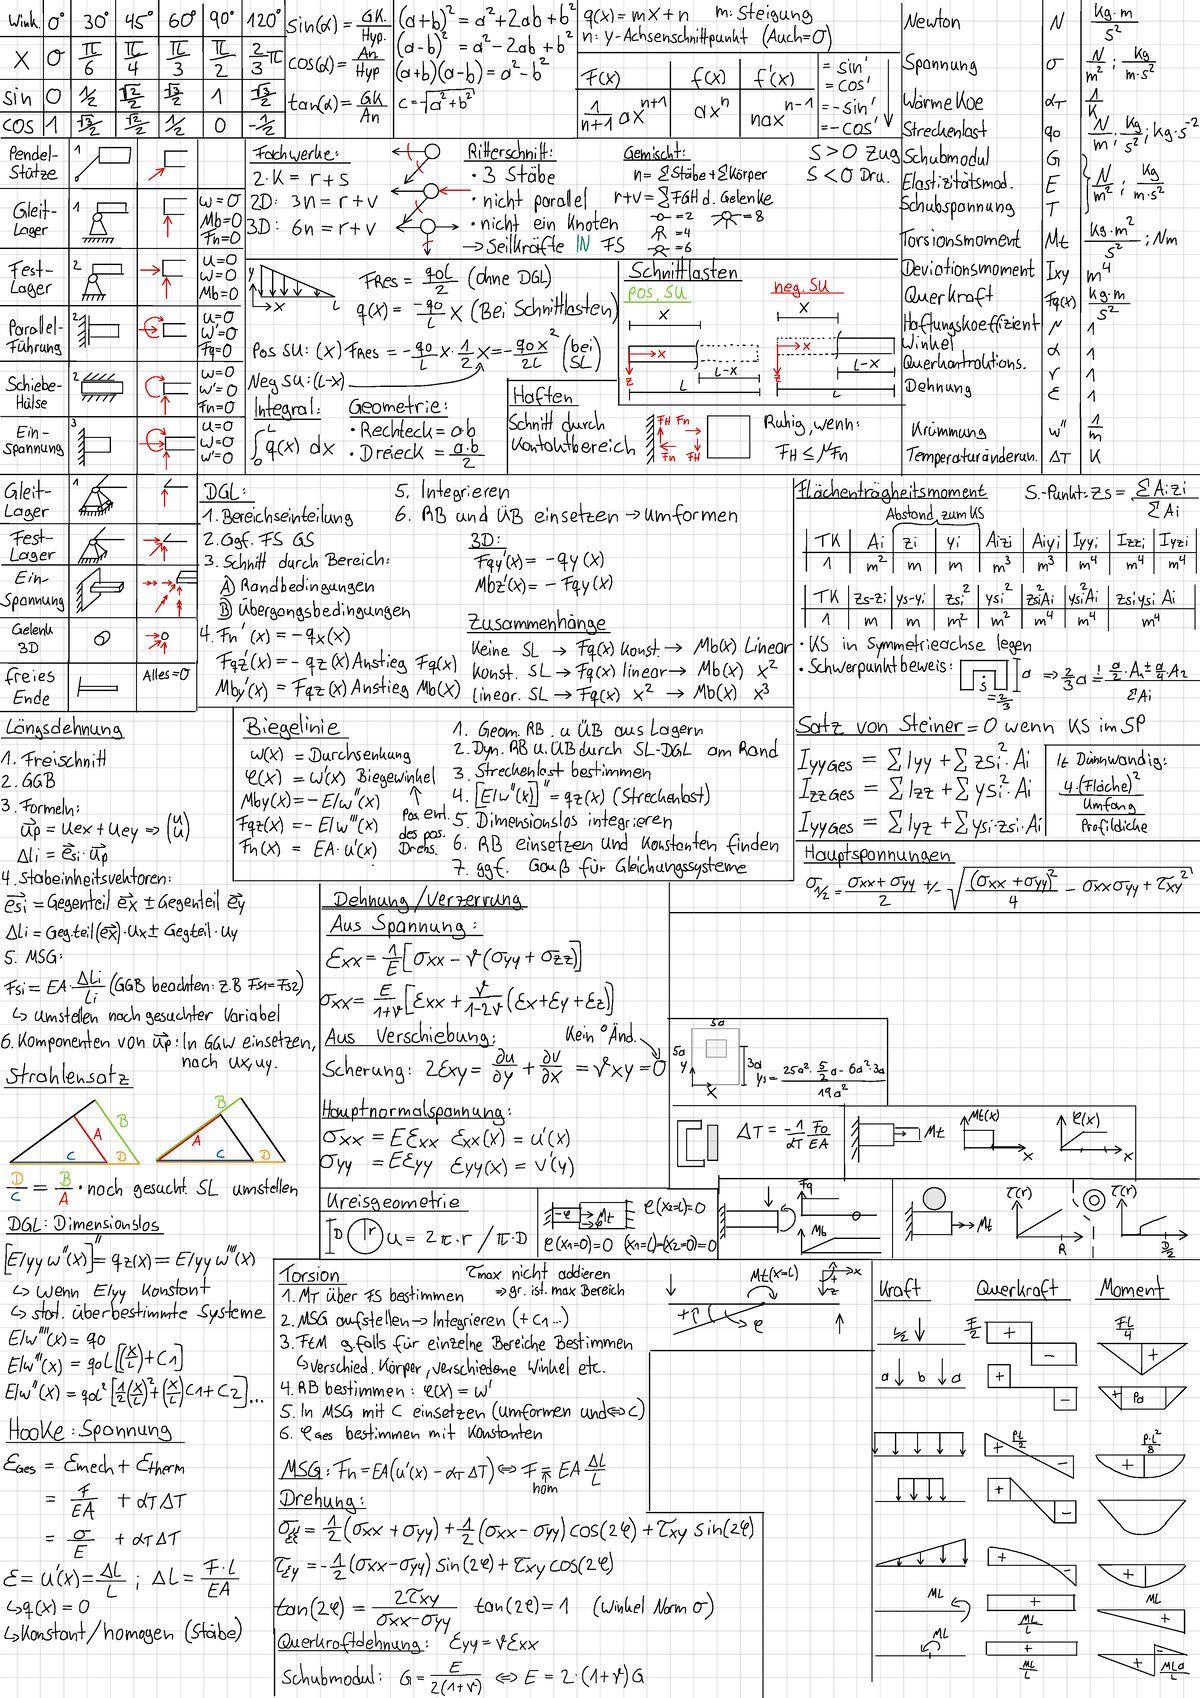 Wink. 0° 30° 45° 60° 90° 120°
X 0 π/6 π/4 π/3 π/2 2/3 π
sin 0 1/2 √2/2 √3/2 1 √3/2
cos 1 √3/2 √2/2 1/2 0 -1/2
sin(α) = GK./Hyp.
cos(α) = An/Hyp
tan(α) = GK/An
(a+b)² = a²+2ab+b²
(a-b)² = a²-2ab+b²
(a+b)(a-b) = a²-b²
c=√a²+b²
q(x) = mx+n m: Steigung
n: y-Achsenschnittpunkt (Auch=0)
F(x) f(x) f'(x)
1/n+1 ax^n+1 ax^n nax^n-1
= sin'
= cos'
=-sin'
=-cos'
Newton N kg·m/s²
Spannung σ N/m² ; kg/m·s²
Wärme Koe αT 1/K
Streckenlast q0 N/m ; kg/s² ; kg·s⁻²
Schubmodul G
Elastizitätsmod. E N/m² ; kg/m·s²
Schubspannung T
Torsionsmoment Mt kg·m²/s² ; Nm
Deviationsmoment Ixy m⁴
Querkraft Fq(x) kg·m/s²
Haftungskoeffizient μ 1
Winkel α 1
Querkontraktions. r 1
Dehnung ε 1
Krümmung w'' 1/m
Temperaturänderun. ΔT K
Pendel-Stütze 1
Gleit-Lager 1 w=0 Mb=0 Fn=0
Fest-Lager 2 u=0 w=0 Mb=0
Parallel-Führung 2 u=0 w'=0 Fq=0
Schiebe-Hülse 2 w=0 w'=0 Fn=0
Ein-spannung 3 u=0 w=0 w'=0
Gleit-Lager 1
Fest-Lager
Ein-Spannung
Gelenk 3D
freies Ende Alles=0
Fachwerke:
2·K = r+s
2D: 3n = r+v
3D: 6n = r+v
Ritterschnitt:
· 3 Stäbe
· nicht parallel
· nicht ein Knoten
→ Seilkräfte IN FS
Gemischt:
n= ΣStäbe+ΣKörper
r+v=ΣFGH d. Gelenke
=2 =8
=4
=6
S>0 Zug
S<0 Dru.
y x L
FRes = q0L/2 (ohne DGL)
q(x) = -q0/L x (Bei Schnittlasten)
Pos SU: (x) FRes = -q0/L x · 1/2 x = -q0x²/2L (bei SL)
Neg SU: (L-x)
Integral:
∫0^L q(x) dx
Geometrie:
· Rechteck = a·b
· Dreieck = a·b/2
Schnittlasten
pos. SU neg. SU
x x
x z L-x L
x z L-x L
Haften
Schnitt durch
Kontaktbereich
FH Fn
Fn FH
Ruhig, wenn:
FH ≤ μFn
DGL:
1. Bereichseinteilung
2. Ggf. FS GS
3. Schnitt durch Bereich:
A) Randbedingungen
B) Übergangsbedingungen
4. Fn'(x) = -qx(x)
Fqz'(x) = -qz(x) Anstieg Fq(x)
Mby'(x) = Fqz(x) Anstieg Mb(x)
5. Integrieren
6. RB und ÜB einsetzen → umformen
3D:
Fqy'(x) = -qy(x)
Mbz'(x) = -Fqy(x)
Zusammenhänge
Keine SL → Fq(x) Konst → Mb(x) Linear
Konst. SL → Fq(x) linear → Mb(x) x²
linear. SL → Fq(x) x² → Mb(x) x³
Flächenträgheitsmoment S.-Punkt: Zs = ΣAi·zi/ΣAi
Abstand zum KS
TK Ai zi yi Aizi Aiyi Iyyi Izzi Iyzi
1 m² m m m³ m³ m⁴ m⁴ m⁴
TK zs-zi ys-yi zsi² ysi² zsi²Ai ysi²Ai zsiysi Ai
1 m m m² m² m⁴ m⁴ m⁴
· KS in Symmetrieachse legen
· Schwerpunktbeweis: S a
Satz von Steiner = 0 wenn KS im SP
IyyGes = ΣIyy + Σzsi²·Ai
IzzGes = ΣIzz + Σysi²·Ai
IyyGes = ΣIyz + Σysi·zsi·Ai
It Dünnwandig:
4·(Fläche)²
Umfang
Profildicke
Hauptspannungen
σ1/2 = σxx+σyy/2 +/- √(σxx+σyy)²/4 - σxxσyy + τxy²
Längsdehnung
1. Freischnitt
2. GGB
3. Formeln:
up = uex + uey ⇒ (u u)
Δli = esi · up
4. Stabeinheitsvektoren:
esi = Gegenteil ex ± Gegenteil ey
ΔLi = Geg.teil(ex)·ux ± Gegteil·uy
5. MSG:
Fsi = EA·ΔLi/Li (GGB beachten: z.B Fs1=Fs2)
↳ umstellen nach gesuchter Variabel
6. Komponenten von up: In GGW einsetzen,
nach ux, uy.
Strahlensatz
A B C D
A B C D
D/C = B/A · nach gesucht. SL umstellen
DGL: Dimensionslos
[EIyy w''(x)]'' = qz(x) = EIyy w''''(x)
↳ wenn EIyy Konstant
↳ stat. überbestimmte Systeme
EIw''''(x) = q0
EIw'''(x) = q0L[(x/L)+C1]
EIw''(x) = q0L²[1/2(x/L)²+(x/L)C1+C2]...
Hooke: Spannung
εGes = εmech + εtherm
= F/EA + αTΔT
= σ/E + αTΔT
ε = u'(x) = ΔL/L ; ΔL = F·L/EA
↳ q(x) = 0
↳ Konstant/homogen (Stäbe)
Biegelinie
w(x) = Durchsenkung
φ(x) = w'(x) Biegewinkel
Mby(x) = -EIw''(x)
Fqz(x) = -EIw'''(x)
Fn(x) = EA·u'(x)
Pos ent.
des pos.
Drehs.
1. Geom. RB. u ÜB aus Lagern
2. Dyn. RB u. ÜB durch SL-DGL am Rand
3. Streckenlast bestimmen
4. [EIw''(x)]'' = qz(x) (Streckenlast)
5. Dimensionslos integrieren
6. RB einsetzen und Konstanten finden
7. ggf. Gauß für Gleichungssysteme
Dehnung/Verzerrung
Aus Spannung:
εxx = 1/E [σxx - ν(σyy + σzz)]
σxx = E/1+ν [εxx + ν/1-2ν (εx+εy+εz)]
Aus Verschiebung: Kein ° Änd.
Scherung: 2εxy = ∂u/∂y + ∂v/∂x = γxy = 0
Hauptnormalspannung:
σxx = Eεxx εxx(x) = u'(x)
σyy = Eεyy εyy(x) = v'(y)
Kreisgeometrie
D r u = 2π·r / π·D
5a
5a y x 3a
ys = 25a²·5/2a - 6a²·3a/19a²
ΔT = -1/αT F0/EA
Mt Mt(x) x φ(x) x
φ(x2=L)=0
φ(x1=0)=0 (x1=L)=(x2=0)=0
Fq Mb
Mt τ(r) R τ(r) D/2
Torsion
τmax nicht addieren
⇒ gr. ist. max Bereich
1. MT über FS bestimmen
2. MSG aufstellen → Integrieren (+C1...)
3. FtM g.falls für einzelne Bereiche Bestimmen
↳ verschied. Körper, verschiedene Winkel etc.
4. RB bestimmen: φ(x) = w'
5. In MSG mit C einsetzen (umformen und ⇔ C)
6. φGes bestimmen mit Konstanten
Mt(x=L) x z
+φ φ
MSG: Fn = EA(u'(x) - αTΔT) ⇔ F = EA ΔL/L
hom
Drehung:
σξ = 1/2(σxx+σyy) + 1/2(σxx-σyy)cos(2φ) + τxy sin(2φ)
τξy = -1/2(σxx-σyy)sin(2φ) + τxy cos(2φ)
tan(2φ) = 2τxy/σxx-σyy tan(2φ) = 1 (Winkel Norm σ)
Querkraftdehnung: εyy = νεxx
Schubmodul: G = E/2(1+ν) ⇔ E = 2·(1+ν)G
Kraft Querkraft Moment
L/2 F/2 + - FL/4 +
a b a + - Pa
+ PL/2 - P·L²/8 +
+ -
+ - +
ML + ML/L ML +
ML + ML/L + - MLa/L